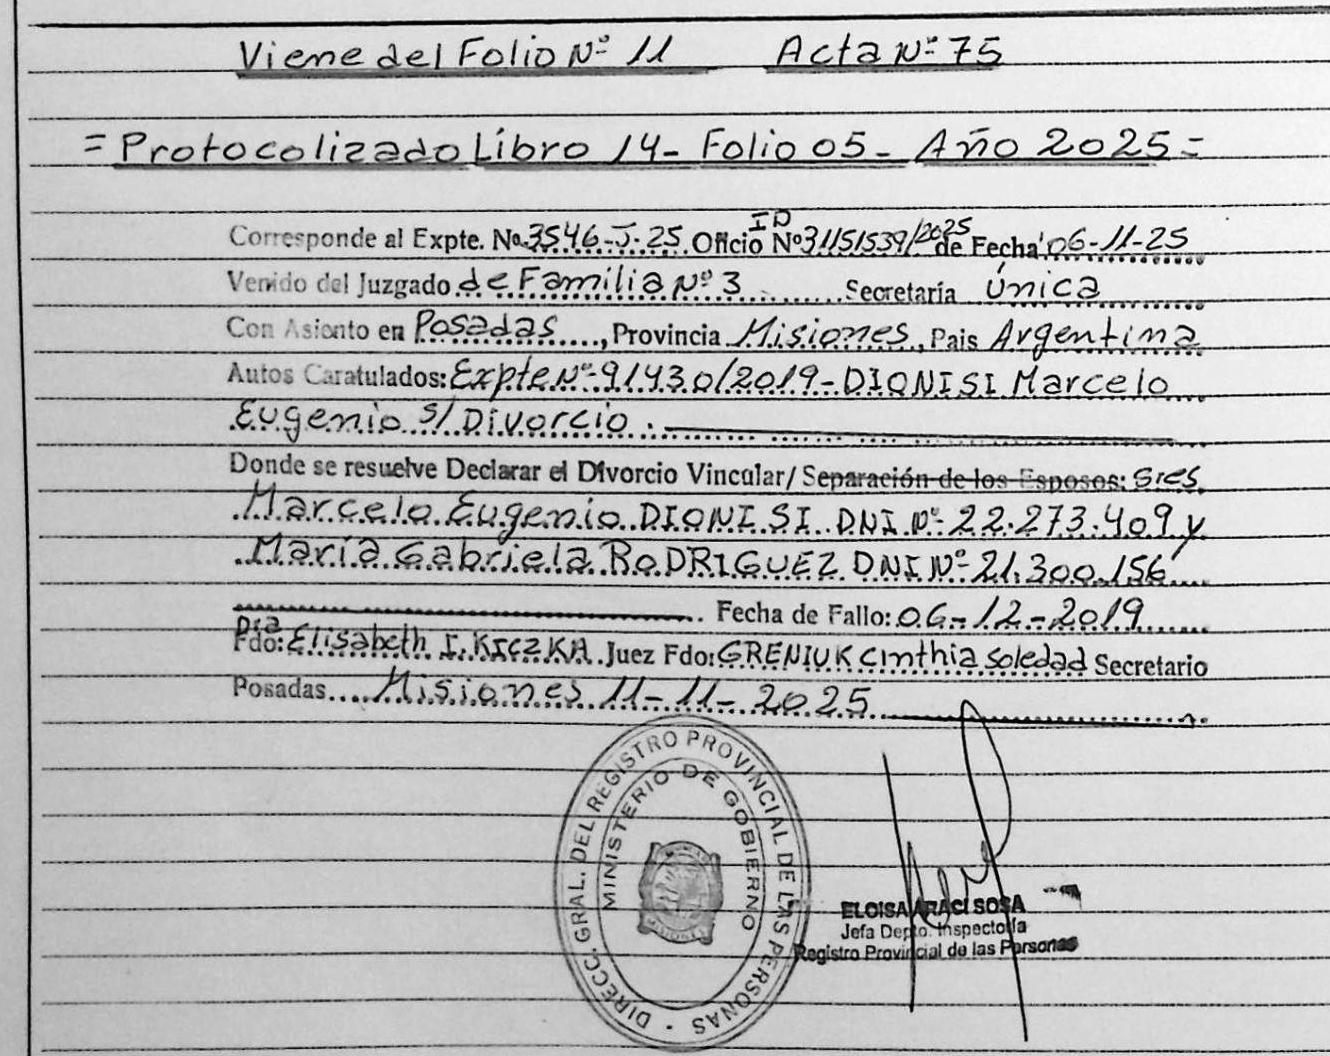 Viene del Folio Nº 11 Acta Nº 75
= Protocolizado Libro 14 - Folio 05 - Año 2025 =
Corresponde al Expte. No. 3546-J-25 Oficio ID Nº 31151539/2025 de Fecha 06-11-25
Venido del Juzgado de Familia Nº 3 Secretaría Única
Con Asiento en Posadas, Provincia Misiones, Pais Argentina
Autos Caratulados: Expte Nº 91430/2019 - DIONISI Marcelo
Eugenio s/ Divorcio.
Donde se resuelve Declarar el Divorcio Vincular/ Separación de los Esposos: Sres
Marcelo Eugenio DIONISI DNI Nº 22.273.409 y
María Gabriela RODRIGUEZ DNI Nº 21.300.156
Fecha de Fallo: 06-12-2019
Fdo: Dra Elisabeth I. KICZKA Juez Fdo: GRENIUK Cinthia Soledad Secretario
Posadas.... Misiones 11-11-2025
DIRECC. GRAL. DEL REGISTRO PROVINCIAL DE LAS PERSONAS
MINISTERIO DE GOBIERNO
MISIONES
ELOISA ARACI SOSA
Jefa Depto. Inspectoría
Registro Provincial de las Personas